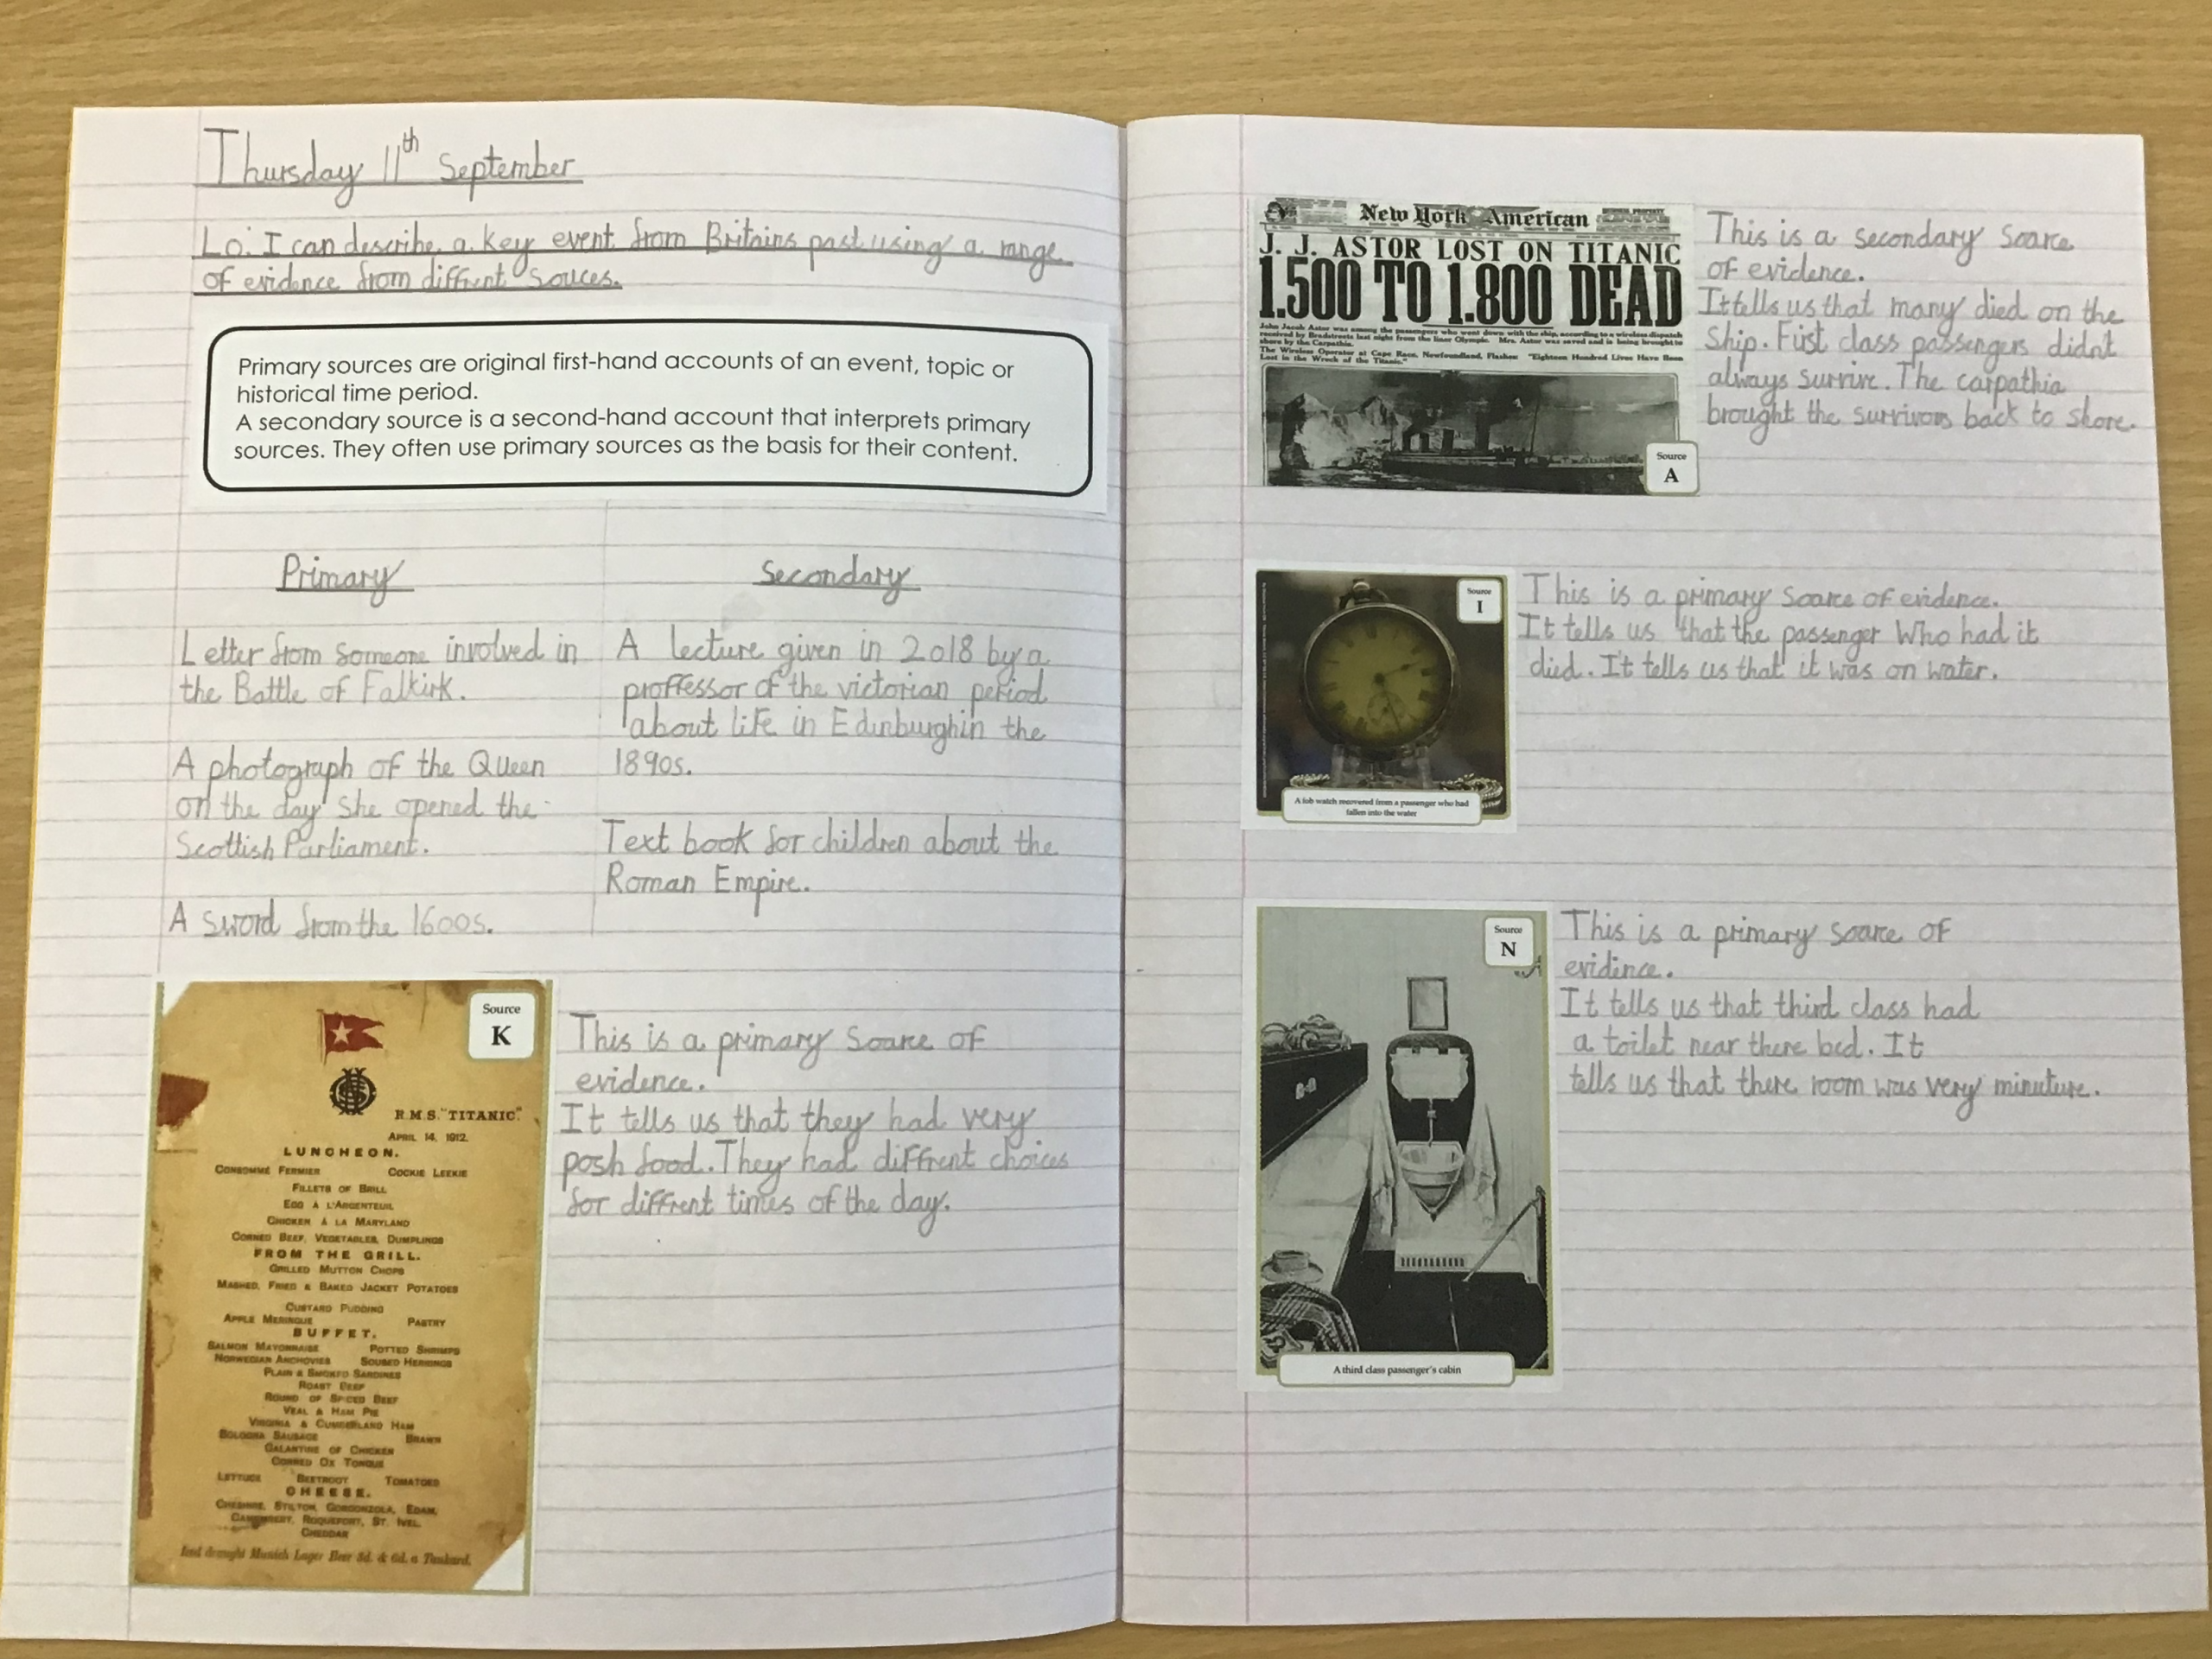 Thursday 11th September
Lo: I can describe a key event from Britains past using a range
of evidence from diffrent souces.
Primary sources are original first-hand accounts of an event, topic or
historical time period.
A secondary source is a second-hand account that interprets primary
sources. They often use primary sources as the basis for their content.
Primary
Letter from someone involved in
the Battle of Falkirk.
A photograph of the Queen
on the day she opened the
Scottish Parliament.
A sword from the 1600s.
Secondary
A lecture given in 2018 by a
proffessor of the victorian period
about life in Edinburgh in the
1890s.
Text book for children about the
Roman Empire.
Source
K
R.M.S. "TITANIC."
APRIL 14, 1912.
LUNCHEON.
CONSOMMÉ FERMIER COCKIE LEEKIE
FILLETS OF BRILL
EGG À L'ARGENTEUIL
CHICKEN À LA MARYLAND
CORNED BEEF, VEGETABLES, DUMPLINGS
FROM THE GRILL.
GRILLED MUTTON CHOPS
MASHED, FRIED & BAKED JACKET POTATOES
CUSTARD PUDDING
APPLE MERINGUE PASTRY
BUFFET.
SALMON MAYONNAISE POTTED SHRIMPS
NORWEGIAN ANCHOVIES SOUSED HERRINGS
PLAIN & SMOKED SARDINES
ROAST BEEF
ROUND OF SPICED BEEF
VEAL & HAM PIE
VIRGINIA & CUMBERLAND HAM
BOLOGNA SAUSAGE BRAWN
GALANTINE OF CHICKEN
CORNED OX TONGUE
LETTUCE BEETROOT TOMATOES
CHEESE.
CHESHIRE, STILTON, GORGONZOLA, EDAM,
CAMEMBERT, ROQUEFORT, ST. IVEL,
CHEDDAR
Iced draught Munich Lager Beer 3d. & 6d. a Tankard.
This is a primary soarce of
evidence.
It tells us that they had very
posh food. They had diffrent choices
for diffrent times of the day.
New York American
J. J. ASTOR LOST ON TITANIC
1.500 TO 1.800 DEAD
John Jacob Astor was among the passengers who went down with the ship, according to a wireless dispatch
received by Bradstreets last night from the liner Olympic. Mrs. Astor was saved and is being brought to
shore by the Carpathia.
The Wireless Operator at Cape Race, Newfoundland, Flashes: "Eighteen Hundred Lives Have Been
Lost in the Wreck of the Titanic."
Source
A
This is a secondary soarce
of evidence.
It tells us that many died on the
ship. First class passengers didn't
always survive. The carpathia
brought the survivors back to shore.
Source
I
A fob watch recovered from a passenger who had
fallen into the water
This is a primary soarce of evidence.
It tells us that the passenger Who had it
died. It tells us that it was on water.
Source
N
A third class passenger's cabin
This is a primary soarce of
evidence.
It tells us that third class had
a toilet near there bed. It
tells us that there room was very minuture.